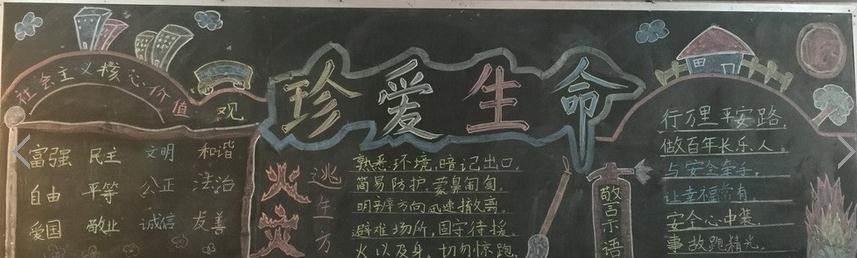 社会主义核心价值观
富强 民主 文明 和谐
自由 平等 公正 法治
爱国 敬业 诚信 友善
珍爱生命
火灾逃生方
熟悉环境,暗记出口,
简易防护,蒙鼻匍匐,
明辨方向迅速撤离,
避难场所,固守待援,
火以及身,切勿惊跑,
警示语
行万里平安路,
做百年长乐人。
与安全牵手,
让幸福常有
安全心中装,
事故跑精光。